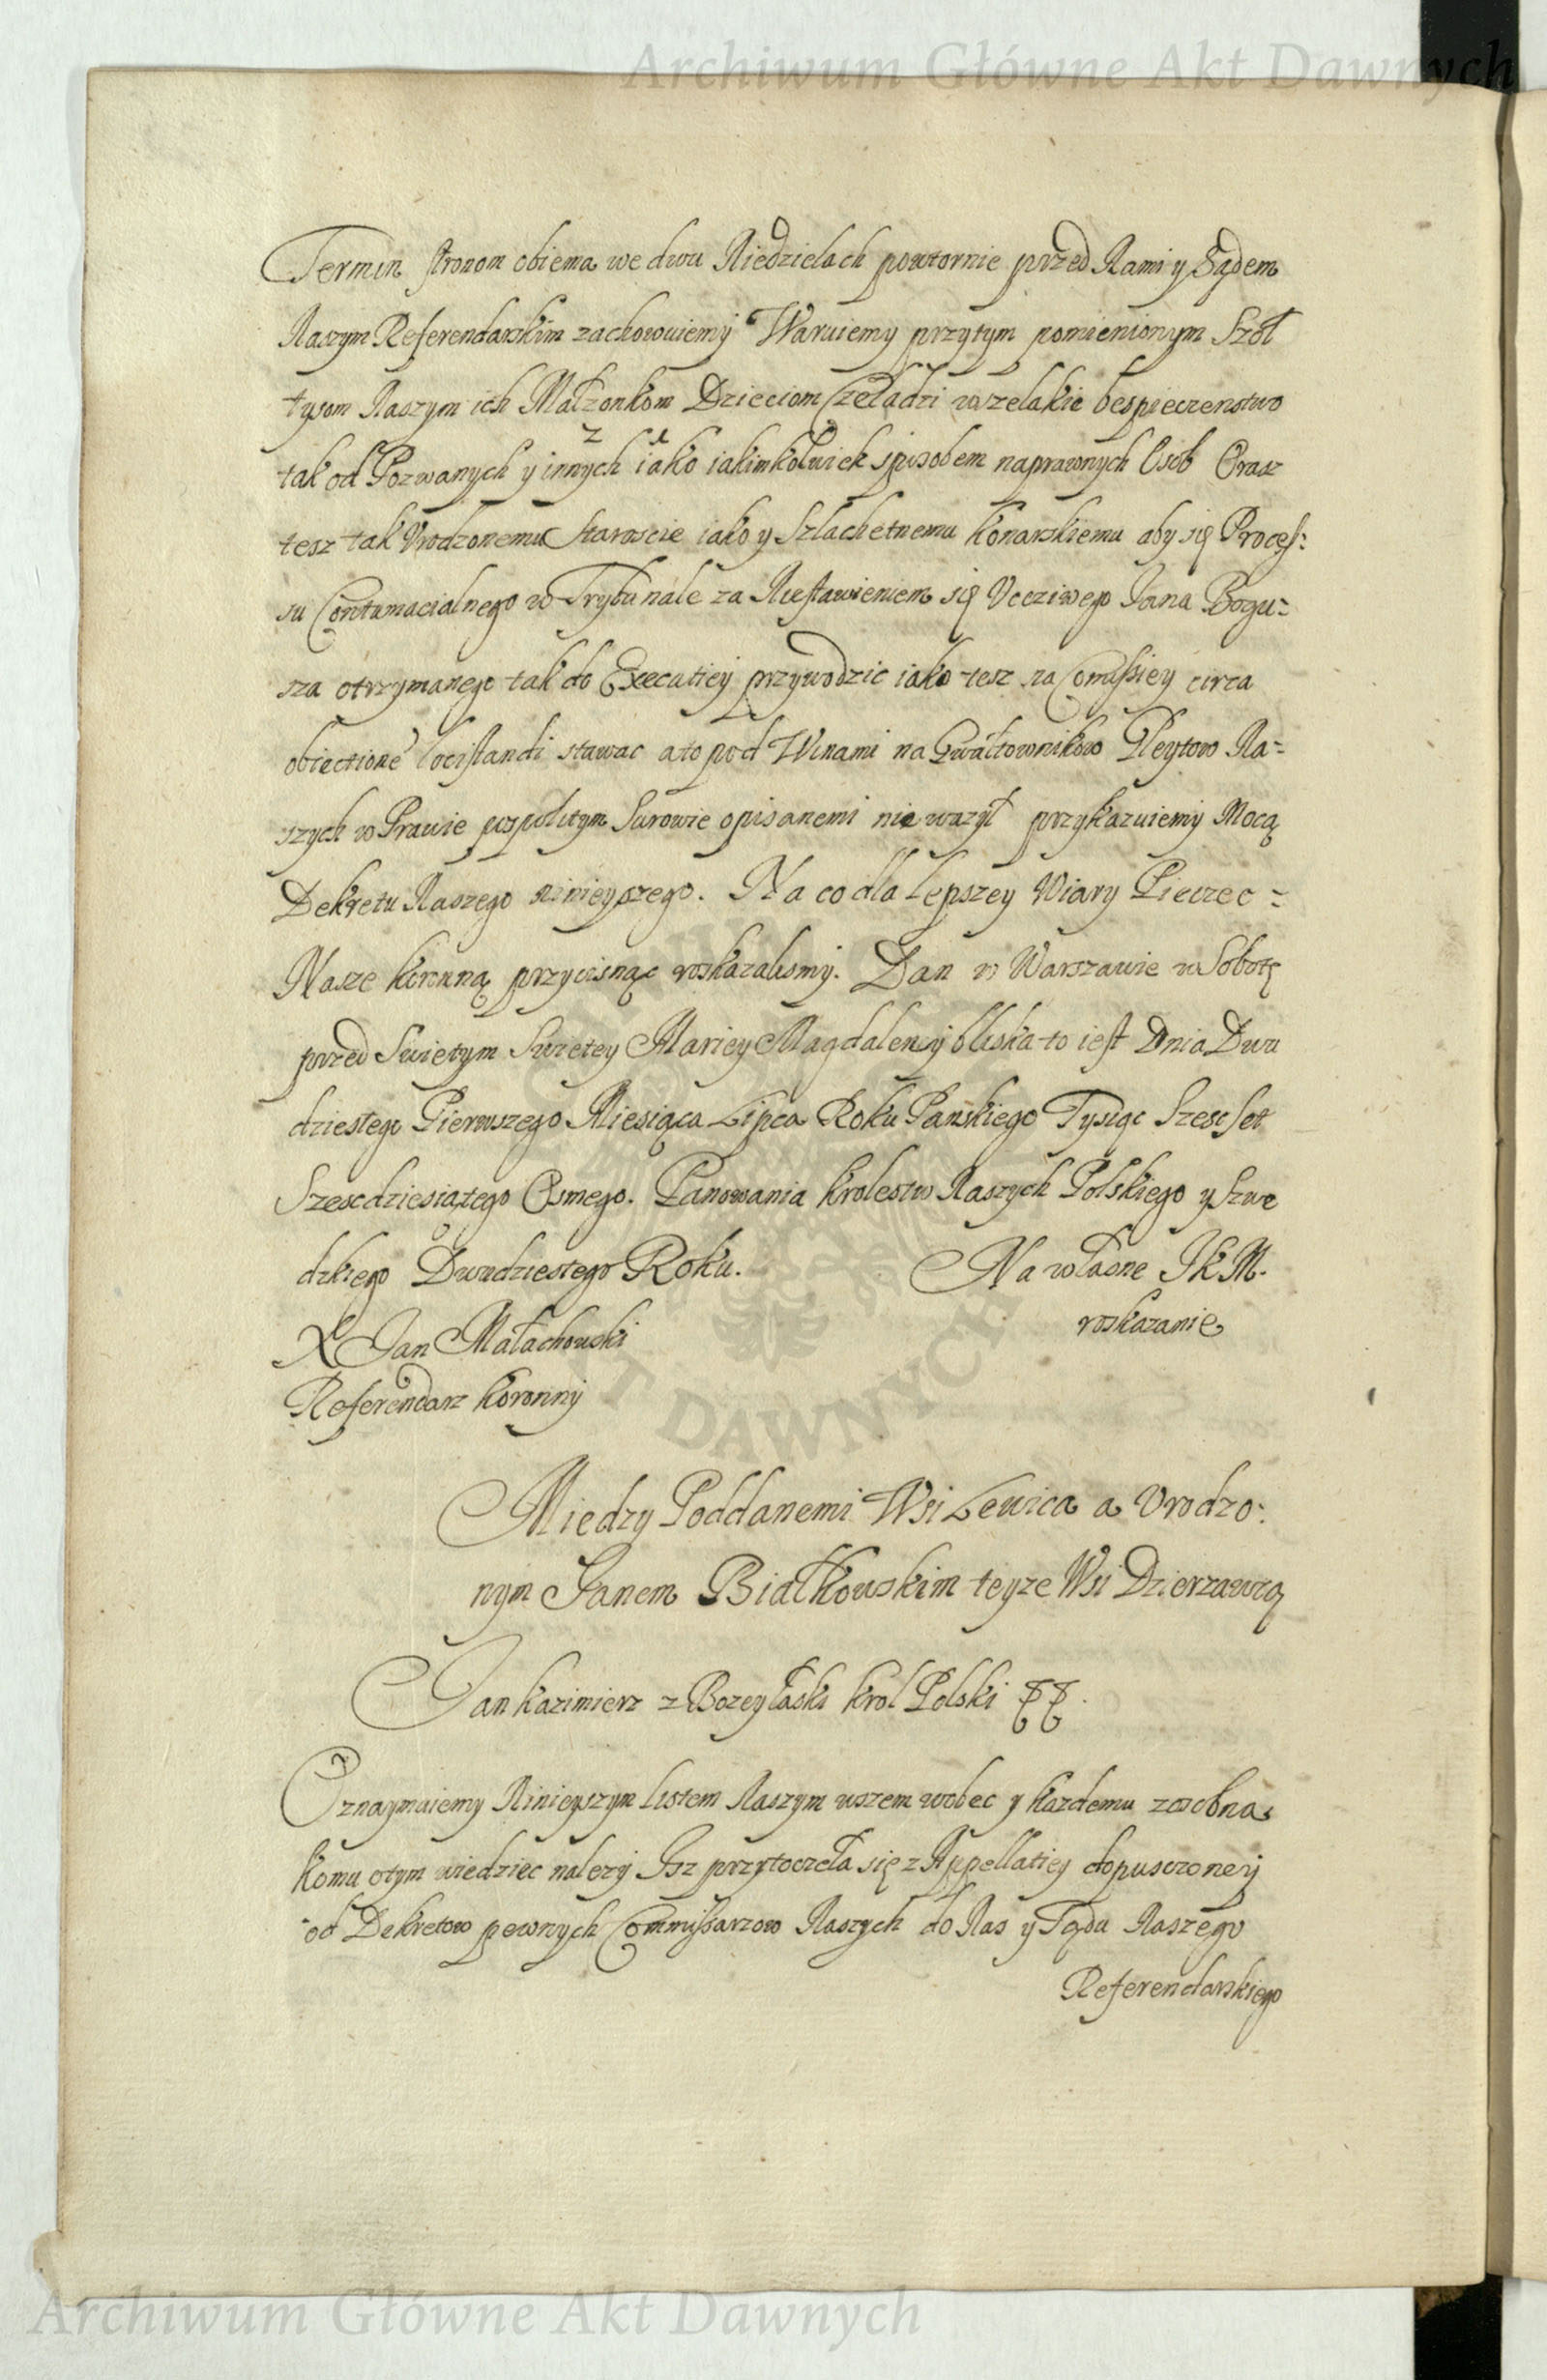 Archiwum Główne Akt Dawnych
Termin stronom obiema we dwu Niedzielach powtornie przed Nami y Sądem
Naszym Referendarskim zachowuiemy Waruiemy przytym pomienionym Szoł
tysom Naszym ich Małzonkom Dzieciom Czeladzi wszelakie bespieczenstwo
tak od Pozwanych y innych iako iakimkolwiek sposobem naprawnych Osob Orasz
tesz tak Urodzonemu Staroscie iako y Szlachetnemu Konarskiemu aby się Proces:
su Contumacialnego w Trybunale za Niestawieniem się Uccziwego Jana Bogu=
sza otrzymanego tak do Executiey przywodzic iako tesz na Comissiey circa
obiectione locistandi stawac a to pod Winami na Gwałtownikow Gleytow Na=
szych w Prawie pospolitym Surowie opisanemi nie wazył przykazuiemy Mocą
Dekretu Naszego ninieyszego. Na co dla lepszey Wiary Pieczec=
Nasze koronną przycisnąc roskazalismy. Dan w Warszawie w Sobotę
przed Swietym Swietey Mariey Magdaleny bliska to iest Dnia Dwu
dziestego Pierwszego Miesiąca Lipca Roku Panskiego Tysiąc Szesc Set
Szescdziesiątego Osmego. Panowania krolestw Naszych Polskiego y Szwe
dzkiego Dwudziestego Roku.
Na własne JkM.
roskazanie
X Jan Małachowski
Referendarz koronny
Miedzy Poddanemi Wsi Lewica a Urodzo:
nym Janem Białkowskim teyze Wsi Dzierzawcą
Jan kazimierz z Bozey łaski krol Polski
Oznaymuiemy Ninieyszym listem Naszym wszem wobec y kazdemu zosobna
komu o tym wiedziec nalezy Isz przytoczeła się z Appellatiey dopusczoney
od Dekretow pewnych Commissarzow Naszych do Nas y Sądu Naszego
Referendarskiego
Archiwum Główne Akt Dawnych